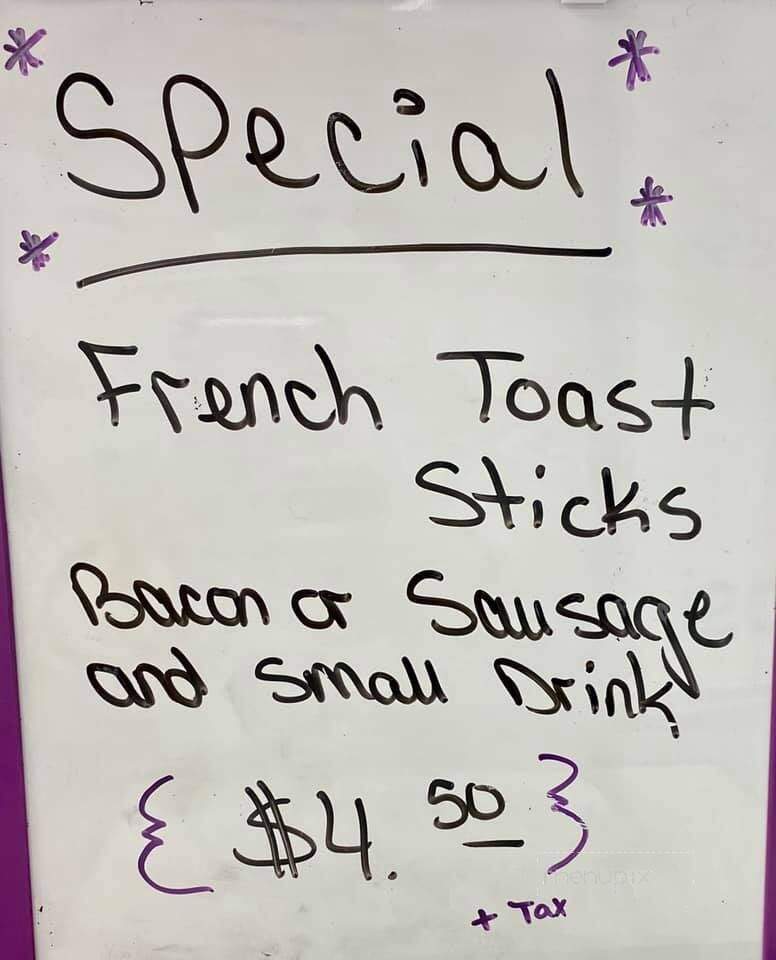 Special
French Toast
Sticks
Bacon or Sausage
and Small Drink
{ $4.50 }
+ Tax
menupix